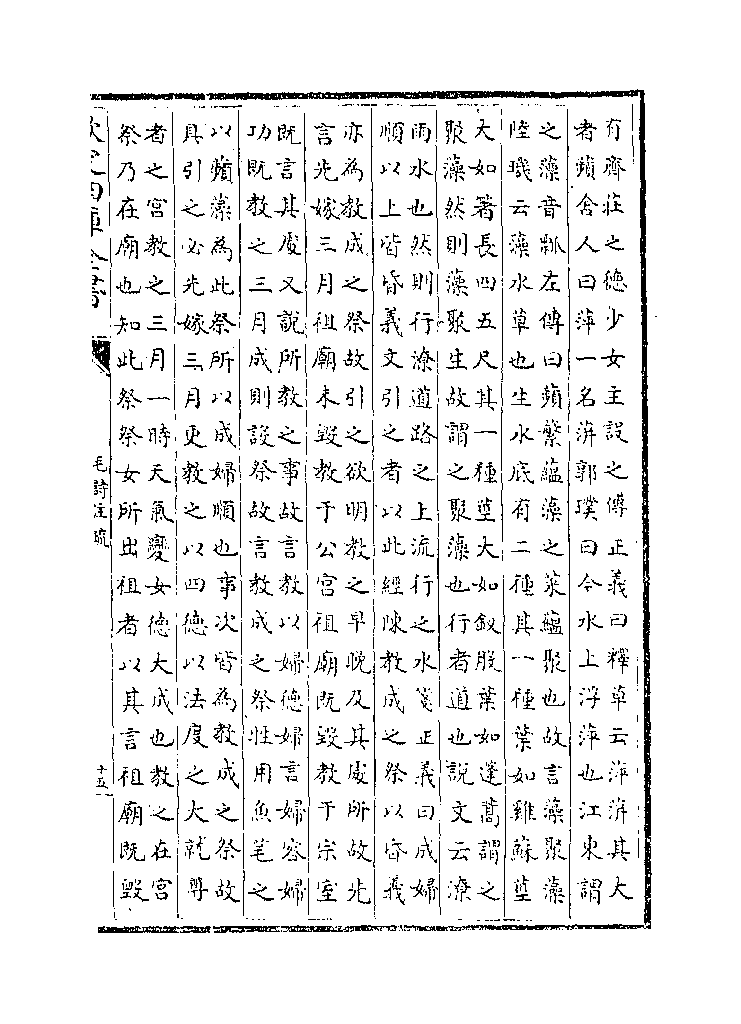 有齊莊之德少女主設之傳正義曰釋草云萍蓱其大
者蘋舍人曰萍一名蓱郭璞曰今水上浮萍也江東謂
之薸音瓢左傳曰蘋蘩蘊藻之菜蘊聚也故言藻聚藻
陸璣云藻水草也生水底有二種其一種葉如雞蘇莖
大如箸長四五尺其一種莖大如釵股葉如蓬蒿謂之
聚藻然則藻聚生故謂之聚藻也行者道也說文云潦
雨水也然則行潦道路之上流行之水箋正義曰成婦
順以上皆昏義文引之者以此經陳教成之祭以昏義
亦為教成之祭故引之欲明教之早晚及其處所故先
言先嫁三月祖廟未毀教于公宮祖廟既毀教于宗室
既言其處又說所教之事故言教以婦德婦言婦容婦
功既教之三月成則設祭故言教成之祭牲用魚芼之
以蘋藻為此祭所以成婦順也事次皆為教成之祭故
具引之必先嫁三月更教之以四德以法度之大就尊
者之宮教之三月一時天氣變女德大成也教之在宮
祭乃在廟也知此祭祭女所出祖者以其言祖廟既毀
欽定四庫全書
毛詩注疏
十五